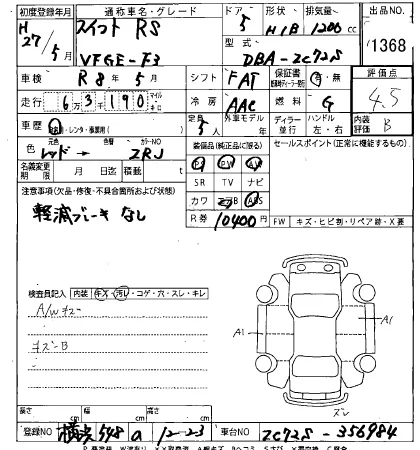 初度登録年月 通称車名・グレード ドア 形状 排気量 出品NO.
H27/5月 スイフト RS 5 H/B 1200 cc 1368
VFGE-F3 型式 DBA-ZC72S
車検 R8年5月 シフト FAT 保証書 有・無 評価点
走行 6万3千190 マイル キロ 冷房 AAC 燃料 G 4.5
車歴 自家用・レンタ・事業用( ) 定員 5人 外車モデル ディラー 並行 ハンドル 左・右 内装評価 B
色 元色 レッド→ 色替 カラーNO ZRJ 装備品(純正品に限る) セールスポイント(正常に機能するもの)
名義変更期限 月 日迄 積載量 t PS PW AW
注意事項(欠品・修復・不具合箇所および改造) SR TV ナビ
軽減ブレーキなし カワ エアB ABS
R券 10400円 FW キズ・ヒビ割・リペア跡・X要
検査員記入 内装 キズ・汚レ・コゲ・穴・スレ・キレ
A/Wキズ
キズB
A1 A1
ズレ
長さ cm 幅 cm 高さ cm
登録NO 横浜 548 a 12-23 車台NO ZC72S-356984